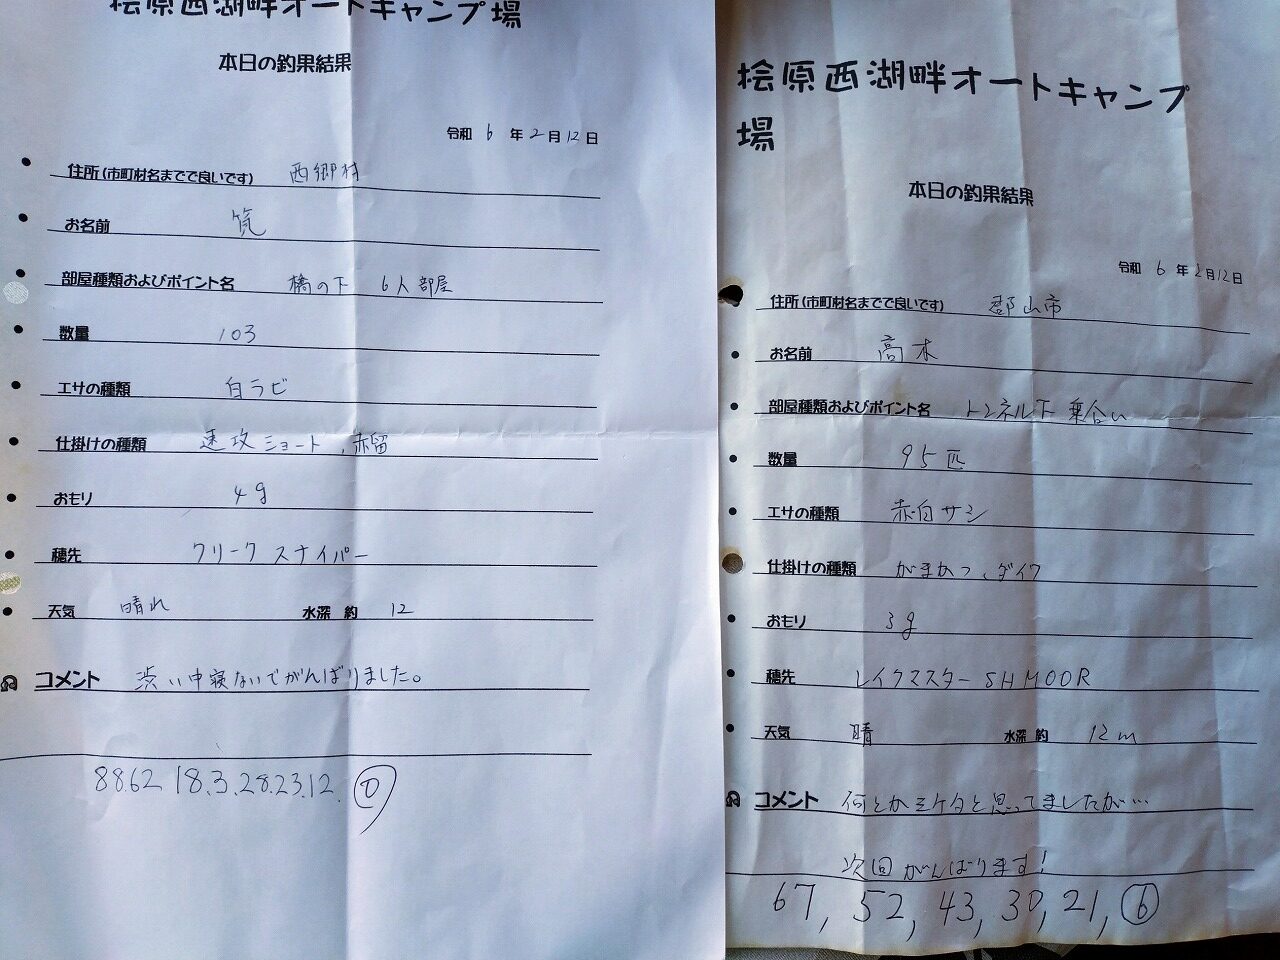 桧原西湖畔オートキャンプ場
本日の釣果結果
令和 6 年 2 月 12 日
住所(市町村名までで良いです) 西郷村
お名前
部屋種類およびポイント名 橋の下 6人部屋
数量 103
エサの種類 白ラビ
仕掛けの種類 速攻ショート、赤留
おもり 4g
穂先 クリークスナイパー
天気 晴れ 水深 約 12
コメント 渋い中寝ないでがんばりました。
8862 18.3.28.23.12. ⓪
桧原西湖畔オートキャンプ
場
本日の釣果結果
令和 6 年 2月12日
住所(市町村名までで良いです) 郡山市
お名前 高木
部屋種類およびポイント名 トンネル下 乗合い
数量 95匹
エサの種類 赤白サシ
仕掛けの種類 がまかつ、ダイワ
おもり 3g
穂先 レイクマスター SH M00R
天気 晴 水深 約 12m
コメント 何とか三ケタと思ってましたが…
次回がんばります!
67, 52, 43, 30, 21, ⑥